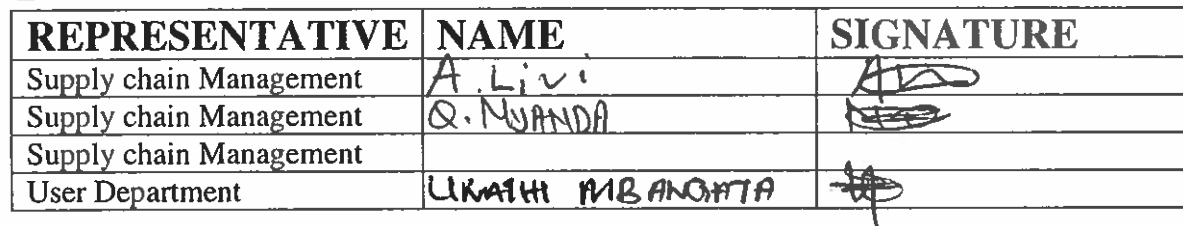 REPRESENTATIVE NAME SIGNATURE
Supply chain Management A. Livi
Supply chain Management Q.
Supply chain Management
User Department